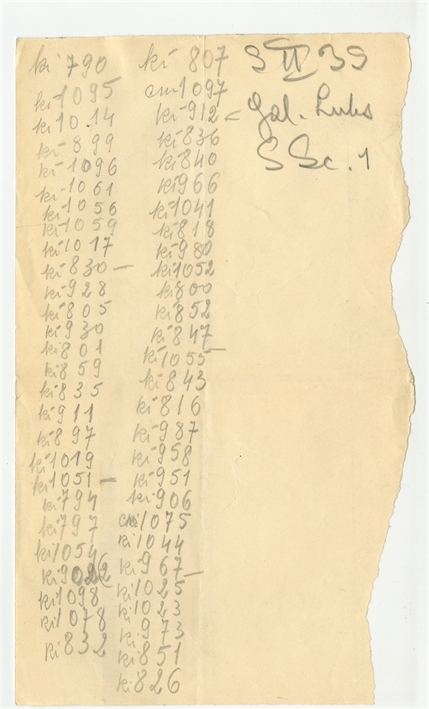 ki 790
ki 1095
ki 10.14
ki 899
ki 1096
ki 1061
ki 1056
ki 1059
ki 1017
ki 830 —
ki 928
ki 805
ki 930
ki 801
ki 859
ki 835
ki 911
ki 897
ki 1019
ki 1051 —
ki 794
ki 797
ki 1054
ki
ki 1098
ki 1078
ki 832
ki 807
1097
ki 912
ki 836
ki 840
ki 966
ki 1041
ki 818
ki 980
ki 1052
ki 800
ki 852
ki 847
ki 1055 —
ki 843
ki 816
ki 987
ki 958
ki 951
ki 906
1075
ki 1044
ki 967 —
ki 1025
ki 1023
ki 973
ki 851
ki 826
S II 39
Gal.
S Sc. 1